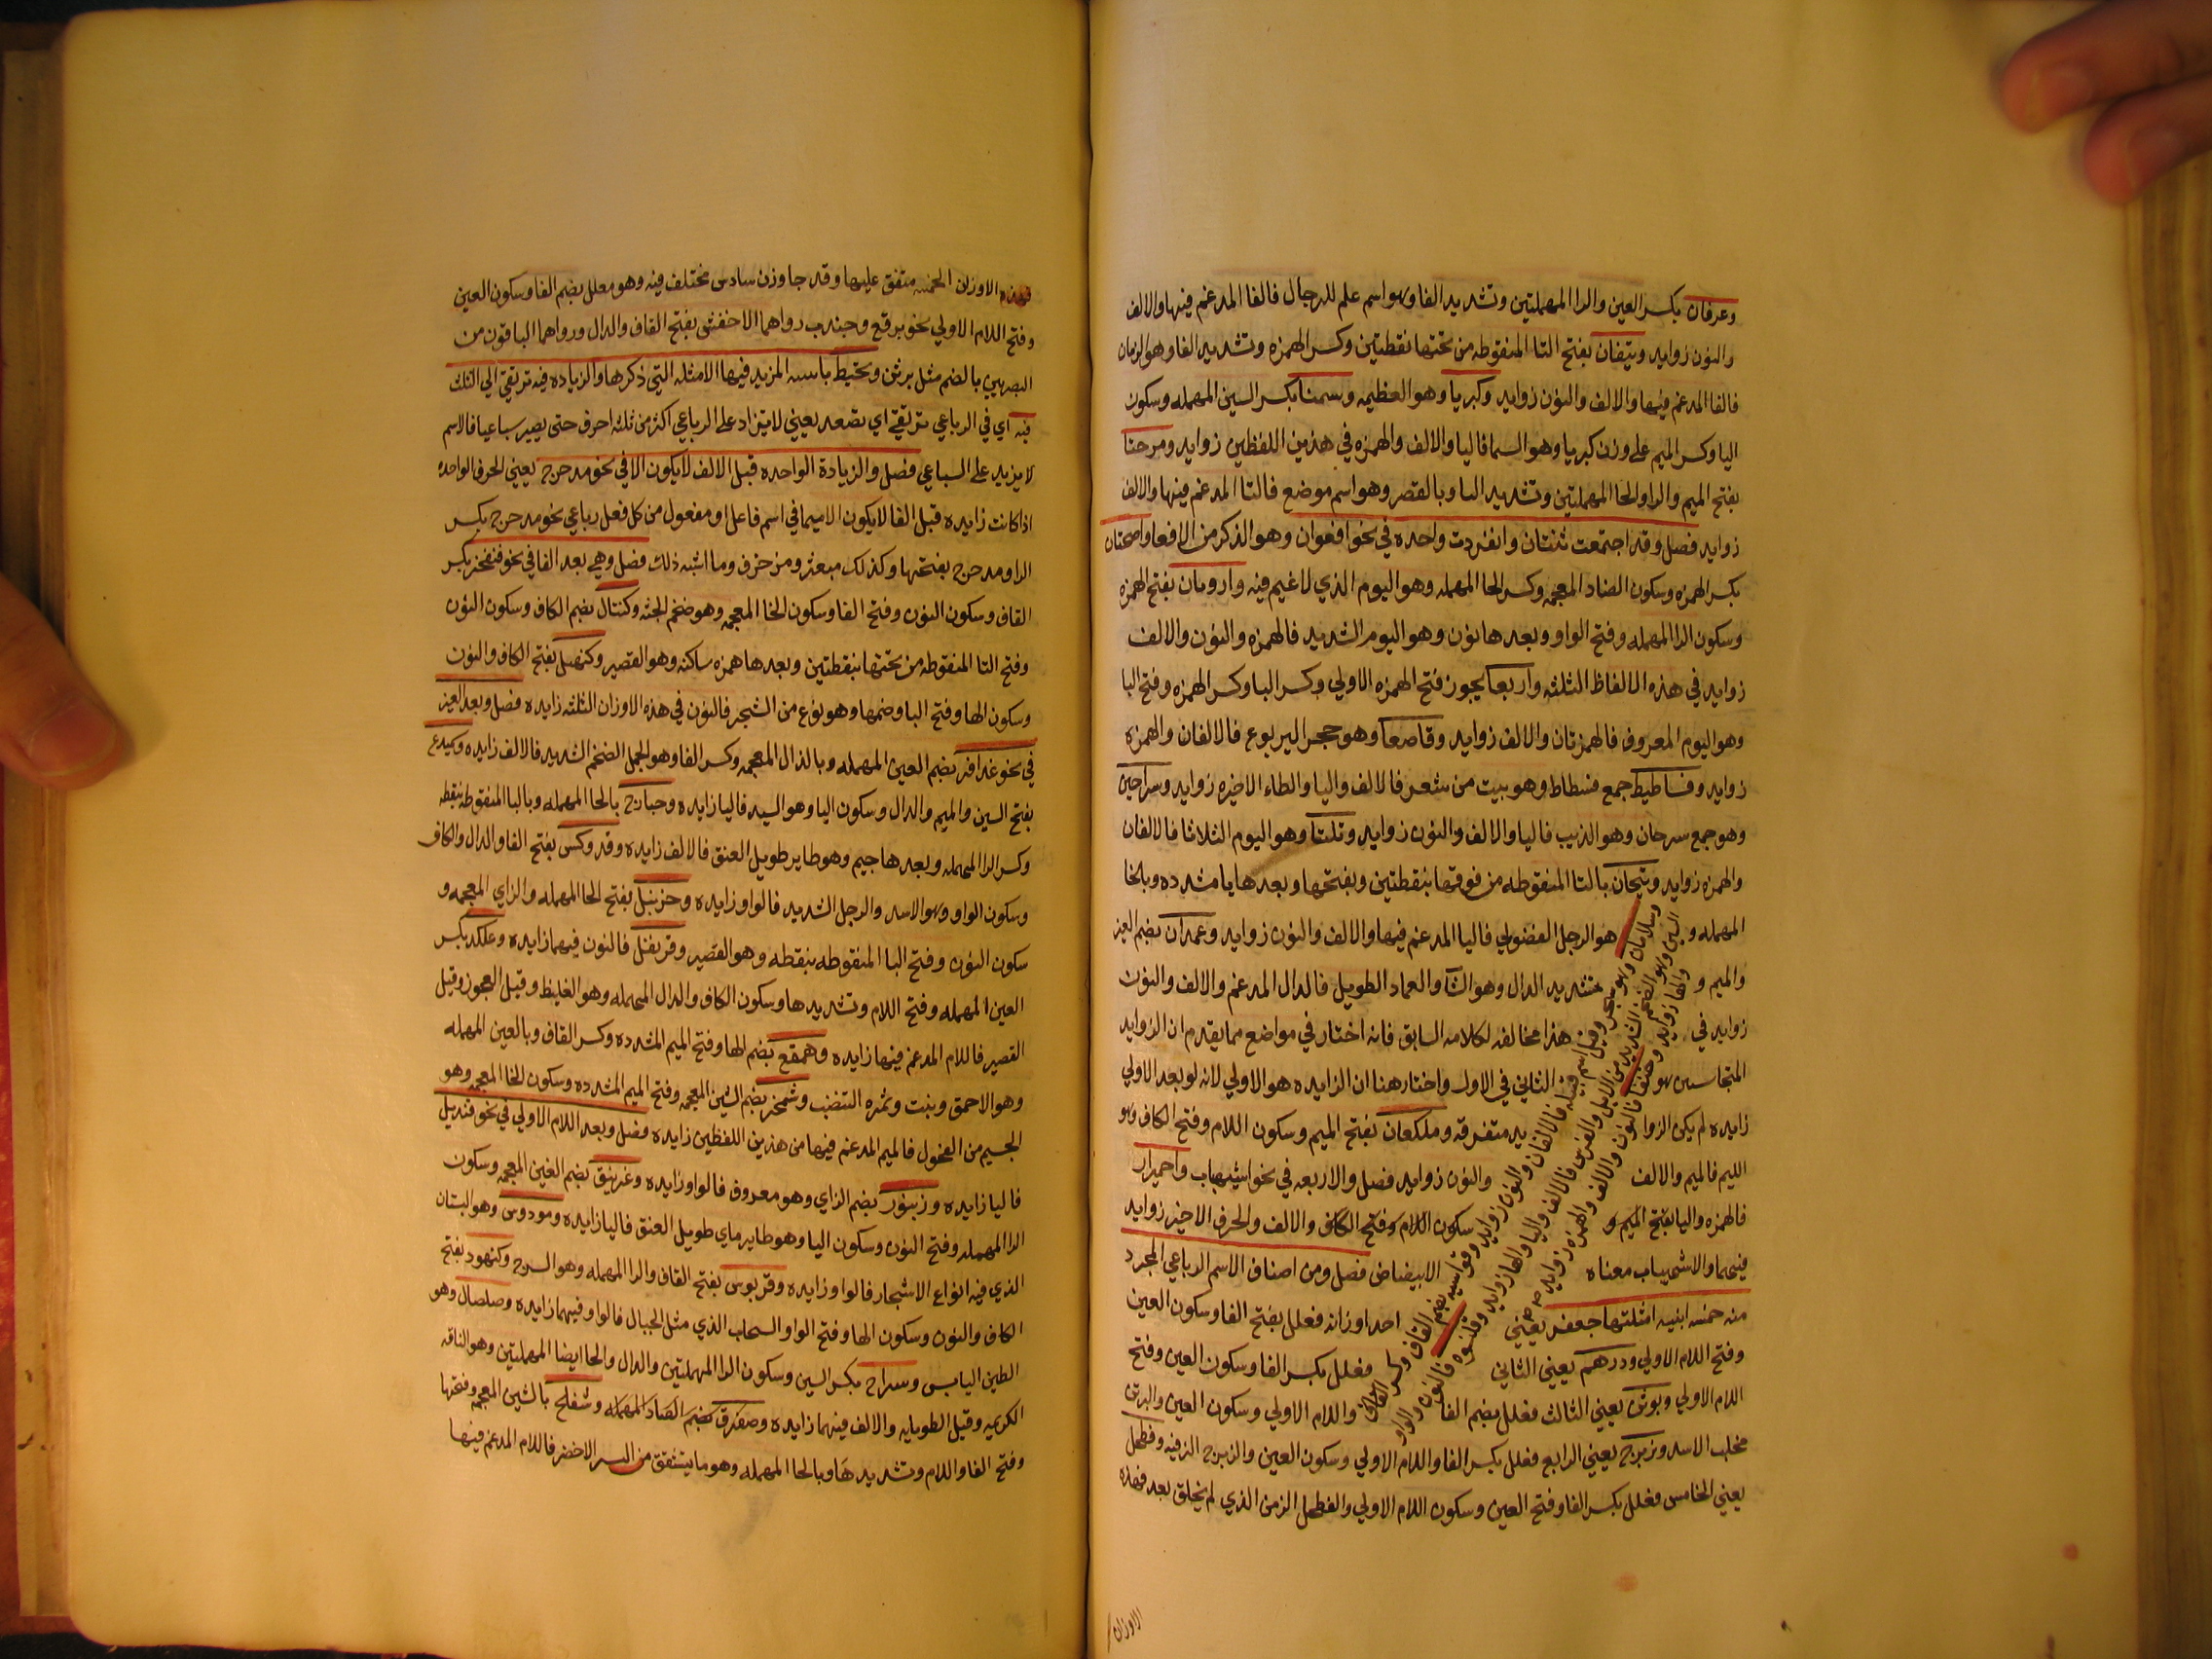 وعرفان بكسر العين والرا المهملتين وتشديد الفا وهو اسم علم للرجال فالفا المدغم فيها والالف
والنون زوايد وتيفان بفتح التا المنقوطه من تحتها نقطتين وكسر الهمزه وتشديد الفا وهو الزمان
فالفا المدغم فيها والالف والنون زوايد وكبريا وهو العظيمه وسمنا بكسر السين المهمله وسكون
اليا وكسر الميم على وزن كبريا وهو السما فاليا والالف والهمزه في هذين اللفظين زوايد ومرحتا
بفتح الميم والرا والحا المهملتين وتشديد اليا وبالقصر وهو اسم موضع فالتا المدغم فيها والالف
زوايد فصل وقد اجتمعت ثنتان وانفردت واحده في نحو افعوان وهو الذكر من الافعا واضحيان
بكسر الهمزه وسكون الضاد المعجمه وكسر الحا المهمله وهو اليوم الذي لا غيم فيه وارونان بفتح الهمزه
وسكون الرا المهمله وفتح الواو وبعدها نون وهو اليوم الشديد فالهمزه والنون والالف
زوايد في هذه الالفاظ الثلثه واربعا يجوز فتح الهمزه الاولي وكسر البا وكسر الهمزه وفتح البا
وهو اليوم المعروف فالهمزتان والالف زوايد وقاصعا وهو حجر اليربوع فالالفان والهمزه
زوايد وفساطيط جمع فسطاط وهو بيت من شعر فالالف واليا والطاء الاخيره زوايد وسراحين
وهو جمع سرحان وهو الذيب فاليا والالف والنون زوايد وثلثا وهو اليوم الثلاثا فالالفان
والهمزه زوايد وتيحان بالتا المنقوطه من فوقها بنقطتين وبفتحها وبعدها يا مشدده وبالحا
المهمله و هو الرجل الفضولي فاليا المدغم فيها والالف والنون زوايد وعمدان بضم العين
والميم و تشديد الدال وهو الشا والعماد الطويل فالدال المدغم والالف والنون
زوايد في هذا مخالفه لكلامه السابق فانه اختار في مواضع مما يقدم ان الزوايد
المتجانسين هو الثاني في الاول واختار هنا ان الزايده هو الاولي لانه لو بعد الاولي
زايده لم يكن الزوا يد متفرقه وملكعان بفتح الميم وسكون اللام وفتح الكاف وهو
الليم فالميم والالف والنون زوايد فصل والاربعه في نحو اشهيباب واحميرار
فالهمزه واليا بفتح الميم و سكون اللام وفتح الكاف والالف والحرف الاخير زوايد
فيهما والاشهيباب معناه الابيضاض فصل ومن اصناف الاسم الرباعي المجرد
منه خمسه ابنيه امثلتها جعفر يعني احد اوزانه فعلل بفتح الفا وسكون العين
وفتح اللام الاولي ودرهم يعني الثاني فعلل بكسر الفا وسكون العين وفتح
اللام الاولي وبرثن يعني الثالث فعلل بضم الفا واللام الاولي وسكون العين والبرثن
مخلب الاسد وزبرج يعني الرابع فعلل بكسر الفا واللام الاولي وسكون العين والزبرج الزينه وفطحل
يعني الخامس فعلل بكسر الفا وفتح العين وسكون اللام الاولي والفطحل الزمن الذي لم يخلق بعد فهذه
وسلامان وهو شجر وقيل اسم قبيله فالالفان والنون زوايد وقراسيه بضم القاف وكسر
السين وهو الضخم الشديد من الابل والفرس فالالف واليا والها زوايد وقلنسوه فالنون والواو
والها زوايد وخنفسا فالنون والالف والهمزه زوايد صح
الاوزان
فهذه الاوزان الخمسه متفق عليها وقد جا وزن سادس مختلف فيه وهو فعلل بضم الفا وسكون العين
وفتح اللام الاولي نحو برقع وجندب رواهما الاخفش بفتح القاف والدال ورواهما الباقون من
البصريين بالضم مثل برثن وتحيط بابنيه المزيد فيها الامثله التي ذكرها والزياده فيه ترتقي الي الثلث
فيه اي في الرباعي ترتقي اي تصعد يعني لا يتزاد على الرباعي اكثر من ثلثه احرف حتى يصير سباعيا فالاسم
لا يزيد على السباعي فصل والزيادة الواحده قبل الالف لا يكون الا في نحو مدحرج يعني الحرف الواحده
اذا كانت زايده قبل الفا لا يكون الا ميما في اسم فاعل او مفعول من كل فعل رباعي نحو مدحرج بكسر
الرا ومدحرج بفتحها وكذلك مبعثر ومزخرف وما اشبه ذلك فصل وهي بعد الفا في نحو قنفخر بكسر
القاف وسكون النون وفتح الفا وسكون الخا المعجمه وهو ضخم الجثه وكنتال بضم الكاف وسكون النون
وفتح التا المنقوطه من تحتها بنقطتين وبعدها همزه ساكنه وهو القصير وكنهبل بفتح الكاف والنون
وسكون الها وفتح البا وضمها وهو نوع من الشجر فالنون في هذه الاوزان الثلثه زايده فصل وبعد العين
في نحو عذافر بضم العين المهمله وبالذال المعجمه وكسر الفا وهو الجمل الضخم الشديد فالالف زايده وسميدع
بفتح السين والميم والدال وسكون اليا وهو السيد فاليا زايده وحبارج بالحا المهمله وبالبا المنقوطه بنقطه
وكسر الرا المهمله وبعدها جيم وهو طاير طويل العنق فالالف زايده وفدوكس بفتح الفا والدال والكاف
وسكون الواو وهو الاسد والرجل الشديد فالواو زايده وحزنبل بفتح الحا المهمله والزاي المعجمه و
سكون النون وفتح البا المنقوطه بنقطه وهو القصير وقرنفل فالنون فيهما زايده وعلكد بكسر
العين المهمله وفتح اللام وتشديدها وسكون الكاف والدال المهمله وهو الغليظ وقيل العجوز وقيل
القصير فاللام المدغم فيها زايده وهمقع بضم الها وفتح الميم المشدده وكسر القاف وبالعين المهمله
وهو الاحمق وبنت وثمره التنضب وشمخر بضم الشين المعجمه وفتح الميم المشدده وسكون الخا المعجمه وهو
الجسيم من الفحول فالميم المدغم فيها من هذين اللفظين زايده فصل وبعد اللام الاولي في نحو قنديل
فاليا زايده وزنبور بضم الزاي وهو معروف فالواو زايده وغرنيق بضم الغين المعجمه وسكون
الرا المهمله وفتح النون وسكون اليا وهو طاير ماي طويل العنق فاليا زايده وفردوس وهو البستان
الذي فيه انواع الاشجار فالواو زايده وقربوس بفتح القاف والرا المهمله وهو السرج وكنهور بفتح
الكاف والنون وسكون الها وفتح الواو السحاب الذي مثل الجبال فالواو فيهما زايده وصلصال وهو
الطين اليابس وسرداح بكسر السين وسكون الرا المهملتين والدال والحا ايضا المهملتين وهو الناقه
الكريمه وقيل الطويله والالف فيهما زايده وصفرق بضم الصاد المهمله وشفلح بالشين المعجمه وفتحها
وفتح الفا واللام وتشديدها وبالحا المهمله وهو ما يتشقق من السر الاخضر فاللام المدغم فيها